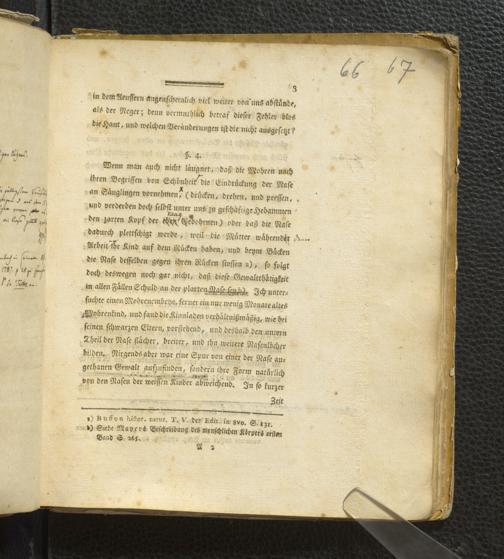 66 67
3
in dem Aeussern augenscheinlich viel weiter von uns abstände,
als der Neger; denn vermuthlich betraf dieser Fehler blos
die Haut, und welchen Veränderungen ist die nicht ausgesetzt?
§. 4.
Wenn man auch nicht läugnet, daß die Mohren nach
ihren Begriffen von Schönheit die Eindrückung der Nase
an Säuglingen vornehmen, (drücken, drehen, und pressen,
und verderben doch selbst unter uns zu geschäftige Hebammen
den zarten Kopf der Gebohrnen) oder daß die Nase
dadurch pletschigt werde, weil die Mütter während der
Arbeit ihr Kind auf dem Rücken haben, und beym Bücken
die Nase desselben gegen ihren Rücken stossen a), so folgt
doch deswegen noch gar nicht, daß diese Gewaltthätigkeit
in allen Fällen Schuld an der platten Nase sey b). Ich unter-
suchte einen Mohrenembryo, ferner ein nur wenig Monate altes
Mohrenkind, und fand die Kinnladen verhältnißmäßig, wie bei
seinen schwarzen Eltern, vorstehend, und deshalb den untern
Theil der Nase flächer, breiter, und ihn weitere Nasenlöcher
bilden. Nirgends aber war eine Spur von einer der Nase an-
gethanen Gewalt aufzufinden, sondern ihre Form natürlich
von den Nasen der weissen Kinder abweichend. In so kurzer
Zeit
a) Buffon histor. natur. T. V. der Edit. in 8vo. S. 231.
b) Siehe Mayers Beschreibung des menschlichen Körpers erster
Band S. 265.
A 2